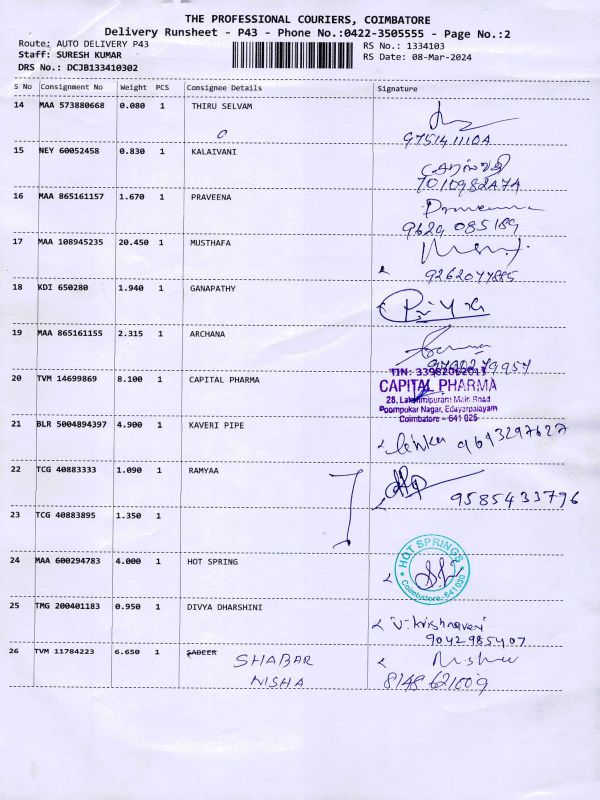 THE PROFESSIONAL COURIERS, COIMBATORE
Delivery Runsheet - P43 - Phone No.:0422-3505555 - Page No.:2
Route: AUTO DELIVERY P43 RS No.: 1334103
Staff: SURESH KUMAR RS Date: 08-Mar-2024
DRS No.: DCJB133410302
S No Consignment No Weight PCS Consignee Details Signature
14 MAA 573880668 0.080 1 THIRU SELVAM
15 NEY 60052458 0.830 1 KALAIVANI
16 MAA 865161157 1.670 1 PRAVEENA
9629 085189
17 MAA 108945235 20.450 1 MUSTHAFA
18 KDI 650280 1.940 1 GANAPATHY
Priya
19 MAA 865161155 2.315 1 ARCHANA
20 TVM 14699869 8.100 1 CAPITAL PHARMA
CAPITAL PHARMA
28, Lakshmipuram Main Road
Poompukar Nagar, Edayarpalayam
Coimbatore - 641 025
21 BLR 5004894397 4.900 1 KAVERI PIPE
9693297627
22 TCG 40883333 1.090 1 RAMYAA
9585433796
23 TCG 40883895 1.350 1
24 MAA 600294783 4.000 1 HOT SPRING
HOT SPRINGS
Coimbatore-641030
25 TMG 200401183 0.950 1 DIVYA DHARSHINI
V. Krishnaveni
9042985407
26 TVM 11784223 6.650 1 SABEER
SHABAR
NISHA
8148621009